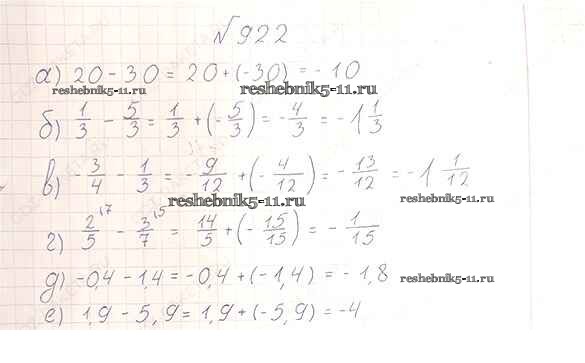 №922
а) 20 - 30 = 20 + (-30) = -10
reshebnik5-11.ru reshebnik5-11.ru
б) 1/3 - 5/3 = 1/3 + (-5/3) = -4/3 = -1 1/3
в) -3/4 - 1/3 = -9/12 + (-4/12) = -13/12 = -1 1/12
reshebnik5-11.ru reshebnik5-11.ru
г) 2/5 \7 - 3/7 \5 = 14/5 + (-15/15) = -1/15
д) -0,4 - 1,4 = -0,4 + (-1,4) = -1,8
reshebnik5-11.ru
е) 1,9 - 5,9 = 1,9 + (-5,9) = -4